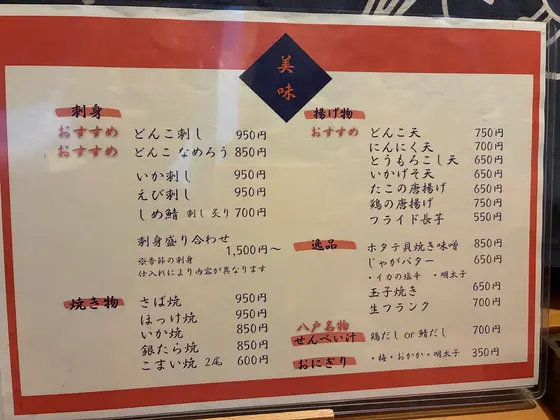 美味
刺身
おすすめ どんこ刺し 950円
おすすめ どんこ なめろう 850円
いか刺し 950円
えび刺し 950円
しめ鯖 刺し 炙り 700円
刺身盛り合わせ 1,500円～
※季節の刺身
仕入れにより内容が異なります
焼き物
さば焼 950円
ほっけ焼 950円
いか焼 850円
銀たら焼 850円
こまい焼 2尾 600円
揚げ物
おすすめ どんこ天 750円
にんにく天 700円
とうもろこし天 650円
いかげそ天 650円
たこの唐揚げ 650円
鶏の唐揚げ 750円
フライド長芋 550円
逸品
ホタテ貝焼き味噌 850円
じゃがバター 650円
・イカの塩辛 ・明太子
玉子焼き 650円
生フランク 700円
八戸名物
せんべい汁 鶏だし or 鯖だし 700円
おにぎり ・梅・おかか・明太子 350円